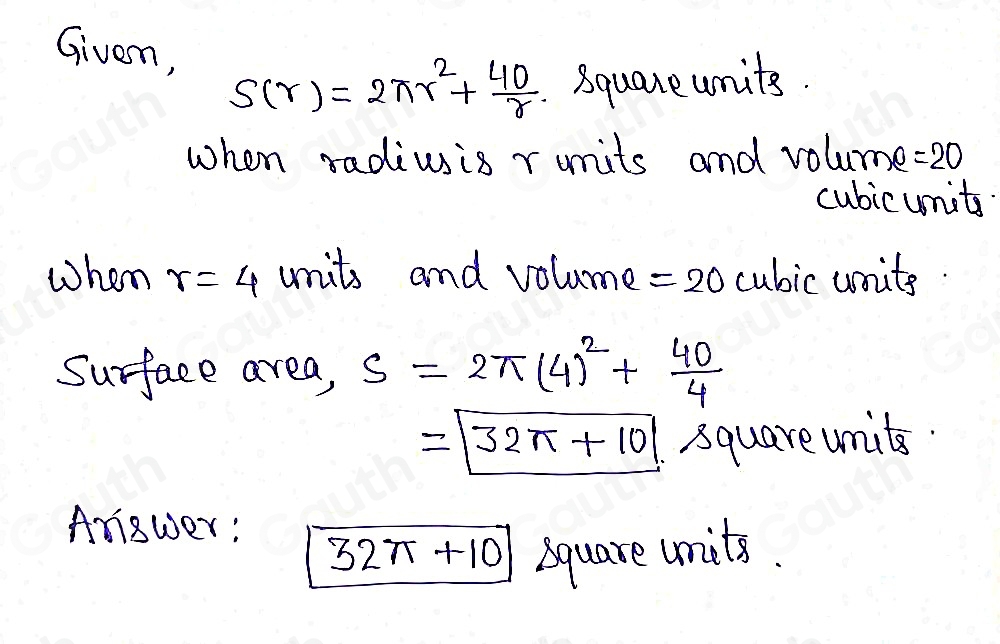 Given,
S(r) = 2πr² + 40/r. square units.
when radius is r units and volume = 20
cubic units.
when r = 4 units and volume = 20 cubic units.
Surface area, S = 2π(4)² + 40/4
= 32π + 10. square units.
Answer: 32π + 10 square units.